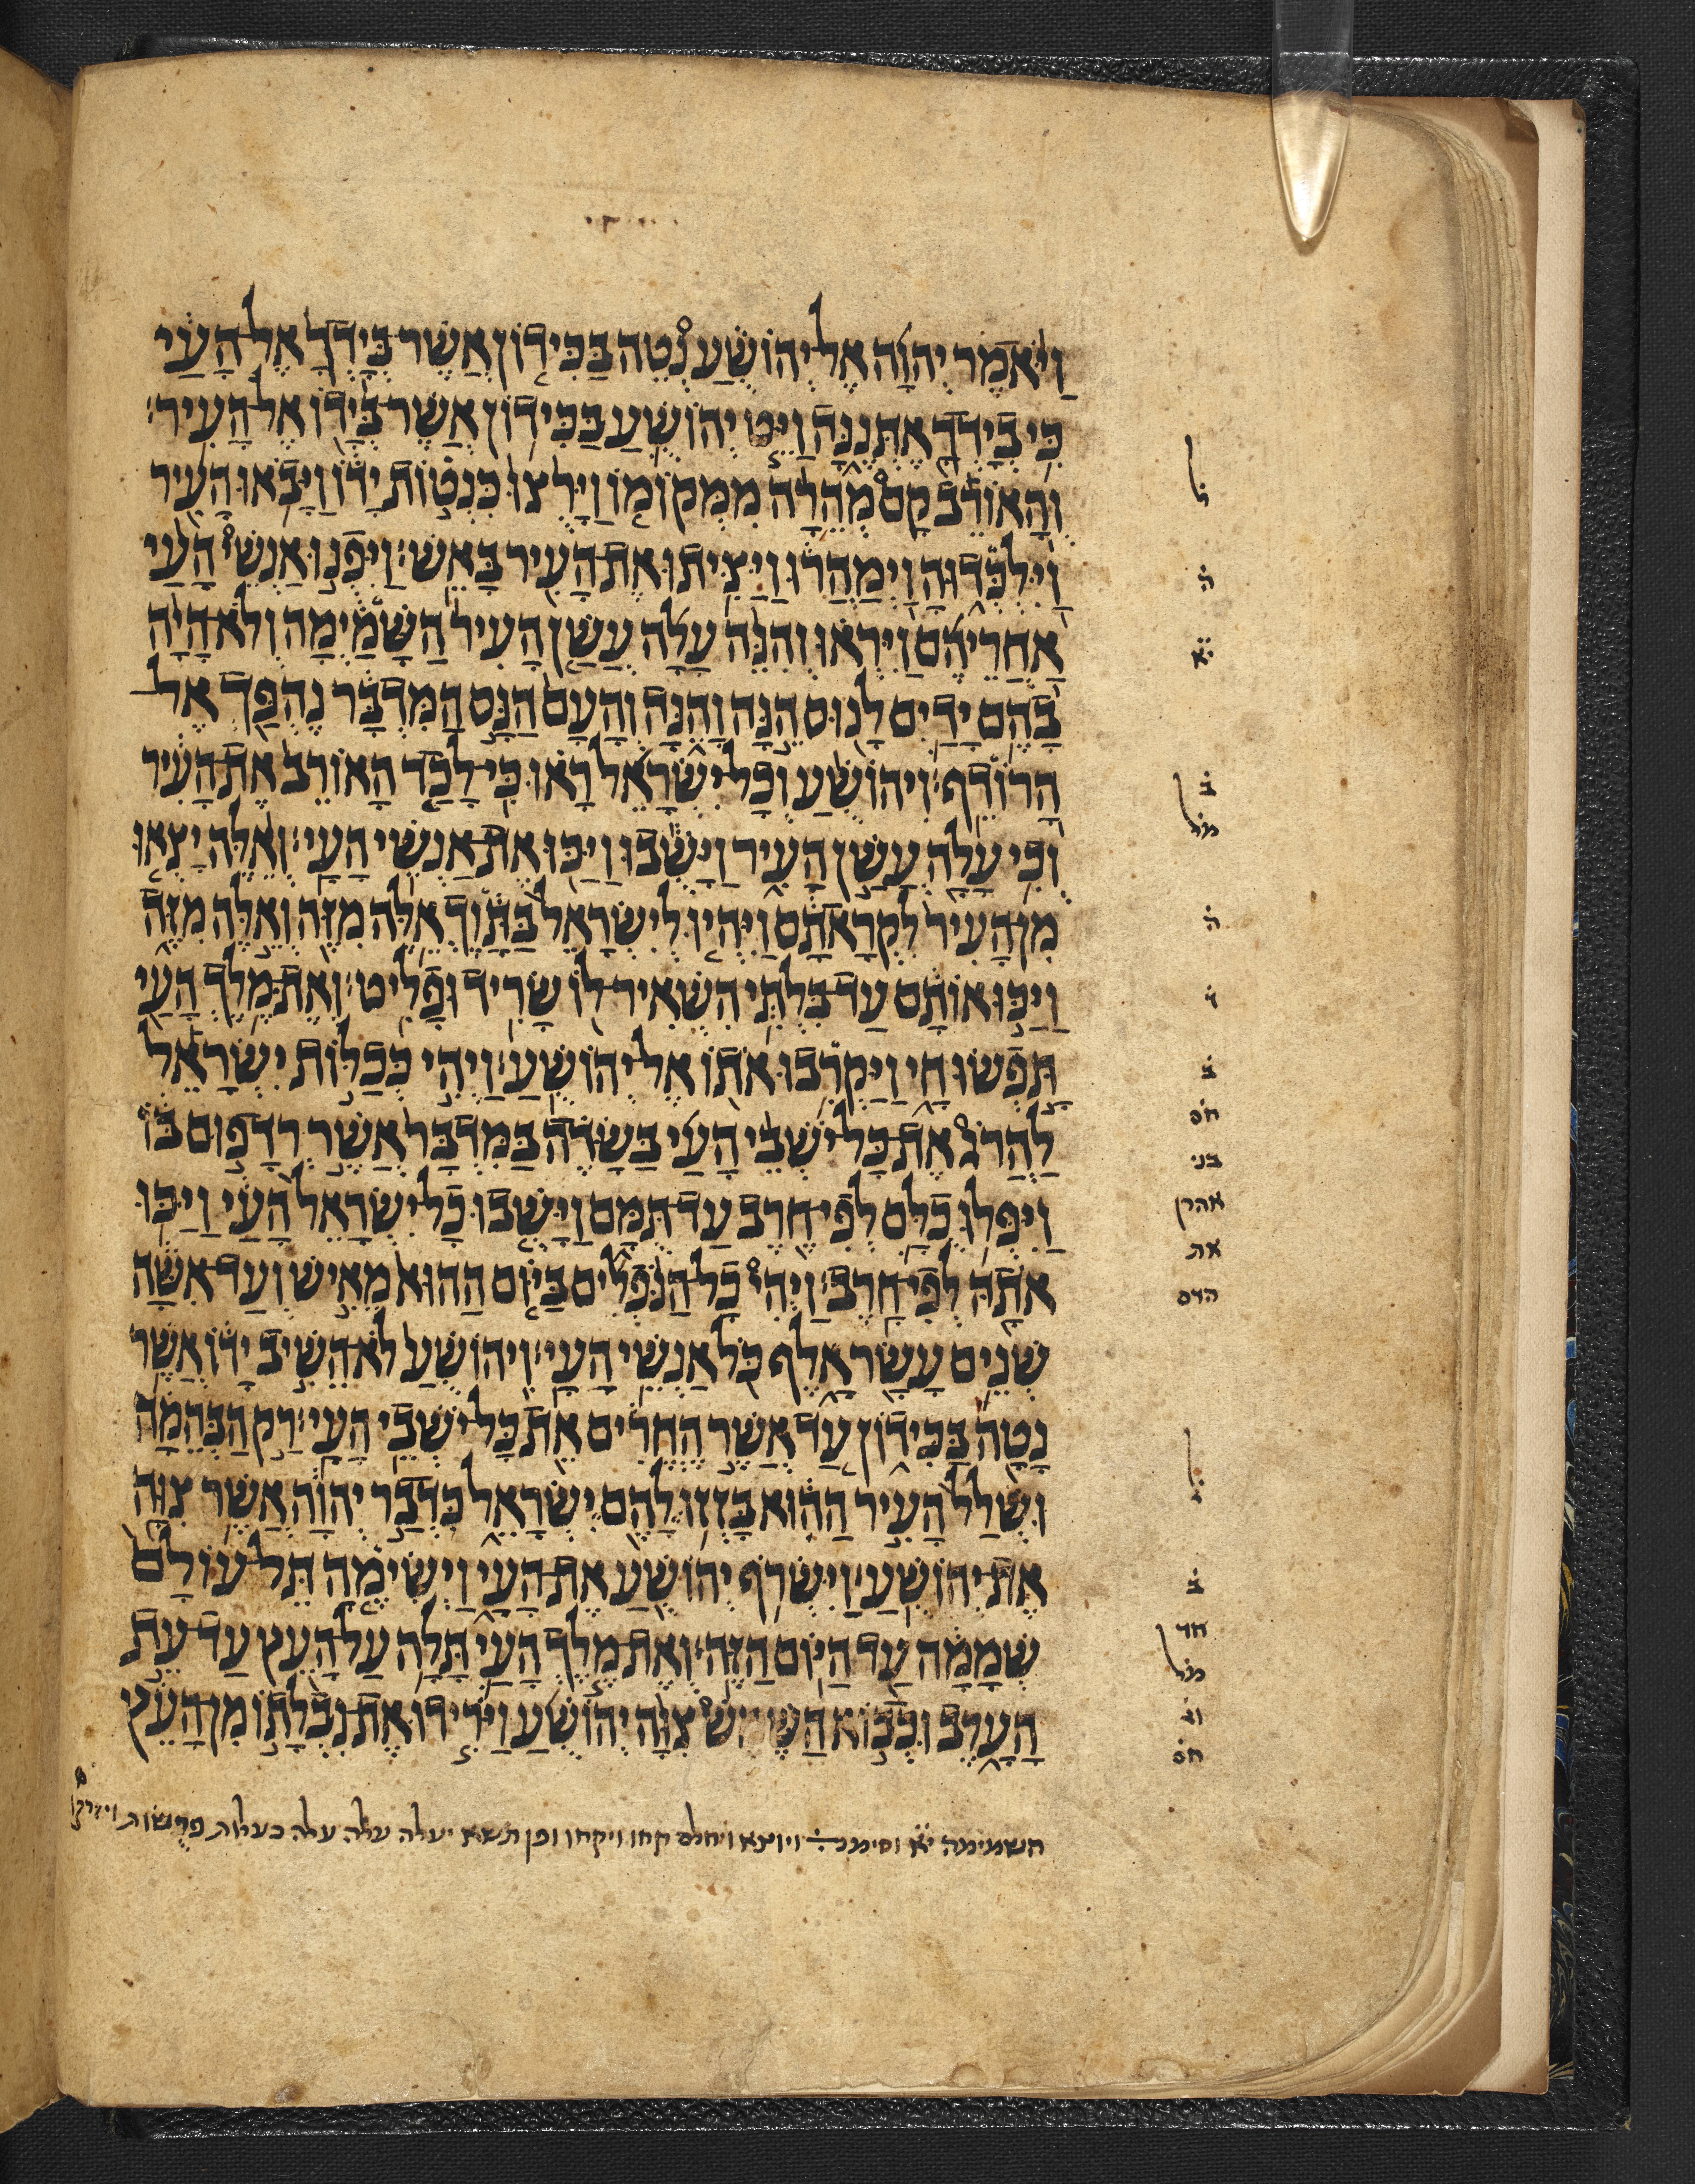 וַיֹּאמֶר יְהוָה אֶל יְהוֹשֻׁעַ נְטֵה בַּכִּידוֹן אֲשֶׁר בְּיָדְךָ אֶל הָעַי
כִּי בְיָדְךָ אֶתְּנֶנָּה וַיֵּט יְהוֹשֻׁעַ בַּכִּידוֹן אֲשֶׁר בְּיָדוֹ אֶל הָעִיר׃
וְהָאוֹרֵב קָם מְהֵרָה מִמְּקוֹמוֹ וַיָּרֻצוּ כִּנְטוֹת יָדוֹ וַיָּבֹאוּ הָעִיר
וַיִּלְכְּדוּהָ וַיְמַהֲרוּ וַיַּצִּיתוּ אֶת הָעִיר בָּאֵשׁ׃ וַיִּפְנוּ אַנְשֵׁי הָעַי
אַחֲרֵיהֶם וַיִּרְאוּ וְהִנֵּה עָלָה עֲשַׁן הָעִיר הַשָּׁמַיְמָה וְלֹא הָיָה
בָהֶם יָדַיִם לָנוּס הֵנָּה וָהֵנָּה וְהָעָם הַנָּס הַמִּדְבָּר נֶהְפַּךְ אֶל
הָרוֹדֵף׃ וִיהוֹשֻׁעַ וְכָל יִשְׂרָאֵל רָאוּ כִּי לָכַד הָאוֹרֵב אֶת הָעִיר
וְכִי עָלָה עֲשַׁן הָעִיר וַיָּשֻׁבוּ וַיַּכּוּ אֶת אַנְשֵׁי הָעָי׃ וְאֵלֶּה יָצְאוּ
מִן הָעִיר לִקְרָאתָם וַיִּהְיוּ לְיִשְׂרָאֵל בַּתָּוֶךְ אֵלֶּה מִזֶּה וְאֵלֶּה מִזֶּה
וַיַּכּוּ אוֹתָם עַד בִּלְתִּי הִשְׁאִיר לוֹ שָׂרִיד וּפָלִיט׃ וְאֶת מֶלֶךְ הָעַי
תָּפְשׂוּ חָי וַיַּקְרִבוּ אֹתוֹ אֶל יְהוֹשֻׁעַ׃ וַיְהִי כְּכַלּוֹת יִשְׂרָאֵל
לַהֲרֹג אֶת כָּל יֹשְׁבֵי הָעַי בַּשָּׂדֶה בַּמִּדְבָּר אֲשֶׁר רְדָפוּם בּוֹ
וַיִּפְּלוּ כֻלָּם לְפִי חֶרֶב עַד תֻּמָּם וַיָּשֻׁבוּ כָל יִשְׂרָאֵל הָעַי וַיַּכּוּ
אֹתָהּ לְפִי חָרֶב׃ וַיְהִי כָל הַנֹּפְלִים בַּיּוֹם הַהוּא מֵאִישׁ וְעַד אִשָּׁה
שְׁנֵים עָשָׂר אָלֶף כֹּל אַנְשֵׁי הָעָי׃ וִיהוֹשֻׁעַ לֹא הֵשִׁיב יָדוֹ אֲשֶׁר
נָטָה בַּכִּידוֹן עַד אֲשֶׁר הֶחֱרִים אֵת כָּל יֹשְׁבֵי הָעָי׃ רַק הַבְּהֵמָה
וּשְׁלַל הָעִיר הַהִוא בָּזְזוּ לָהֶם יִשְׂרָאֵל כִּדְבַר יְהוָה אֲשֶׁר צִוָּה
אֶת יְהוֹשֻׁעַ׃ וַיִּשְׂרֹף יְהוֹשֻׁעַ אֶת הָעָי וַיְשִׂימֶהָ תֵּל עוֹלָם
שְׁמָמָה עַד הַיּוֹם הַזֶּה׃ וְאֶת מֶלֶךְ הָעַי תָּלָה עַל הָעֵץ עַד עֵת
הָעָרֶב וּכְבוֹא הַשֶּׁמֶשׁ צִוָּה יְהוֹשֻׁעַ וַיֹּרִידוּ אֶת נִבְלָתוֹ מִן הָעֵץ
ל
ה
יא
ב
מל
ה
ד
ב
חס
בני
אהרן
את
הדם
ל
ב
חד
מל
וג
חס
השמימה יא וסימנ ויוצא ויחלם קחו ויקחו ופן תשא יעלה עלה עלה כעלות פרשות ויזרקו